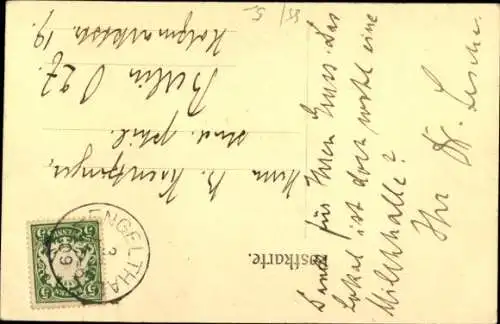 Postkarte.
Herrn
stud. phil.
Berlin O 27
Holzmarktstr. 19.
Dank für Ihren Gruss. Das
Lokal ist doch wohl eine
Milchhalle?
Ihr Dr.
ENGELTHAL
5 5
5 5